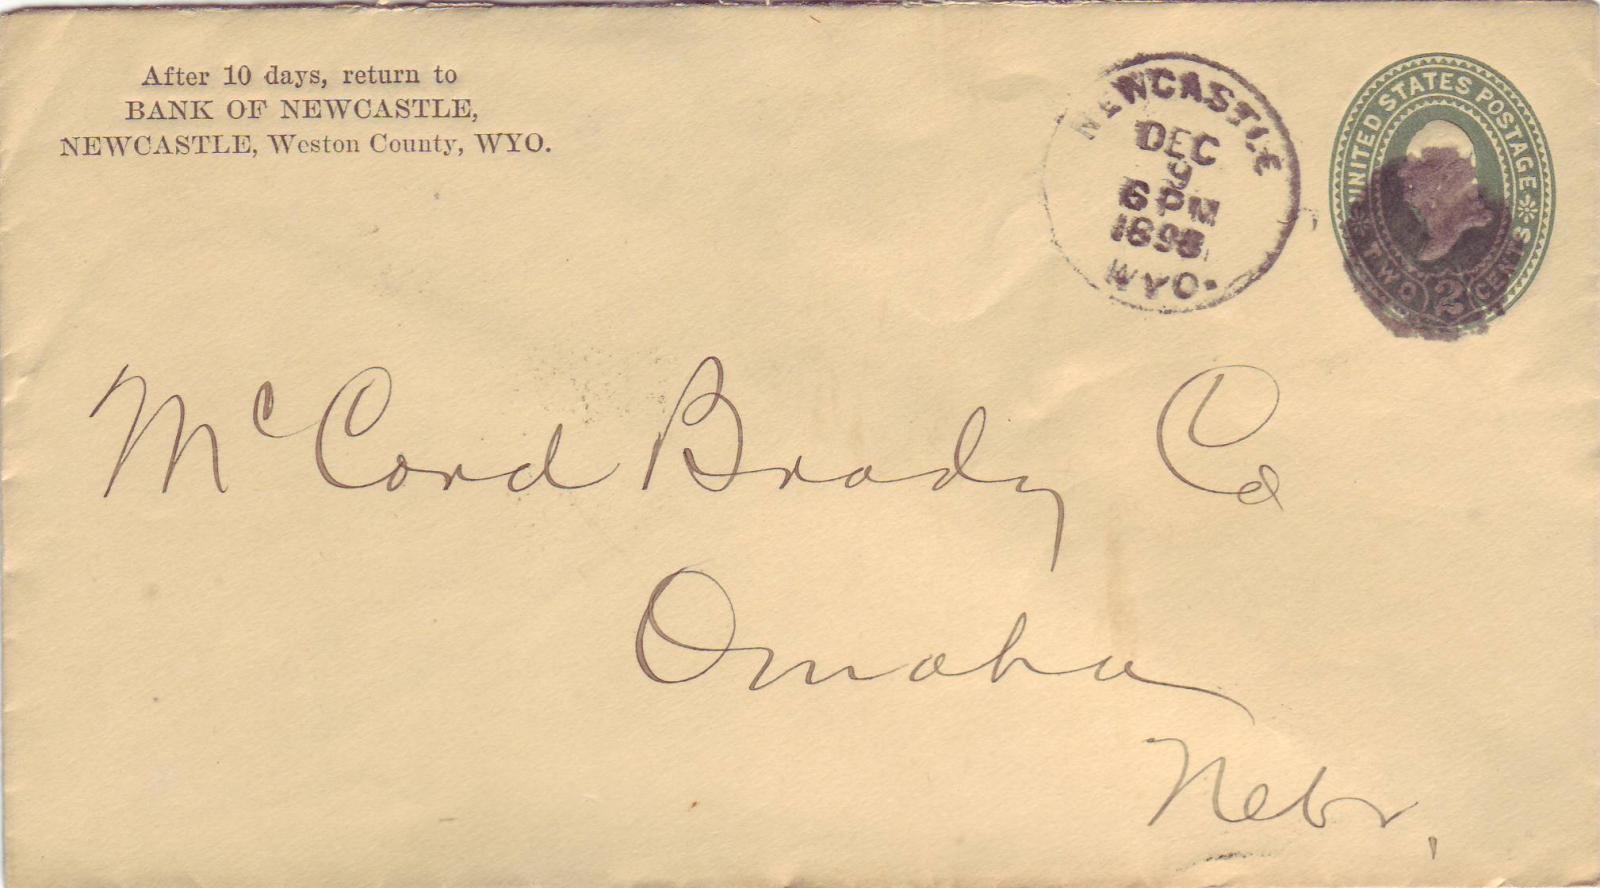 After 10 days, return to
BANK OF NEWCASTLE,
NEWCASTLE, Weston County, WYO.
NEWCASTLE
DEC
9
6 PM
1898
WYO.
UNITED STATES POSTAGE
TWO 2 CENTS
McCord Brady Co
Omaha
Nebr,